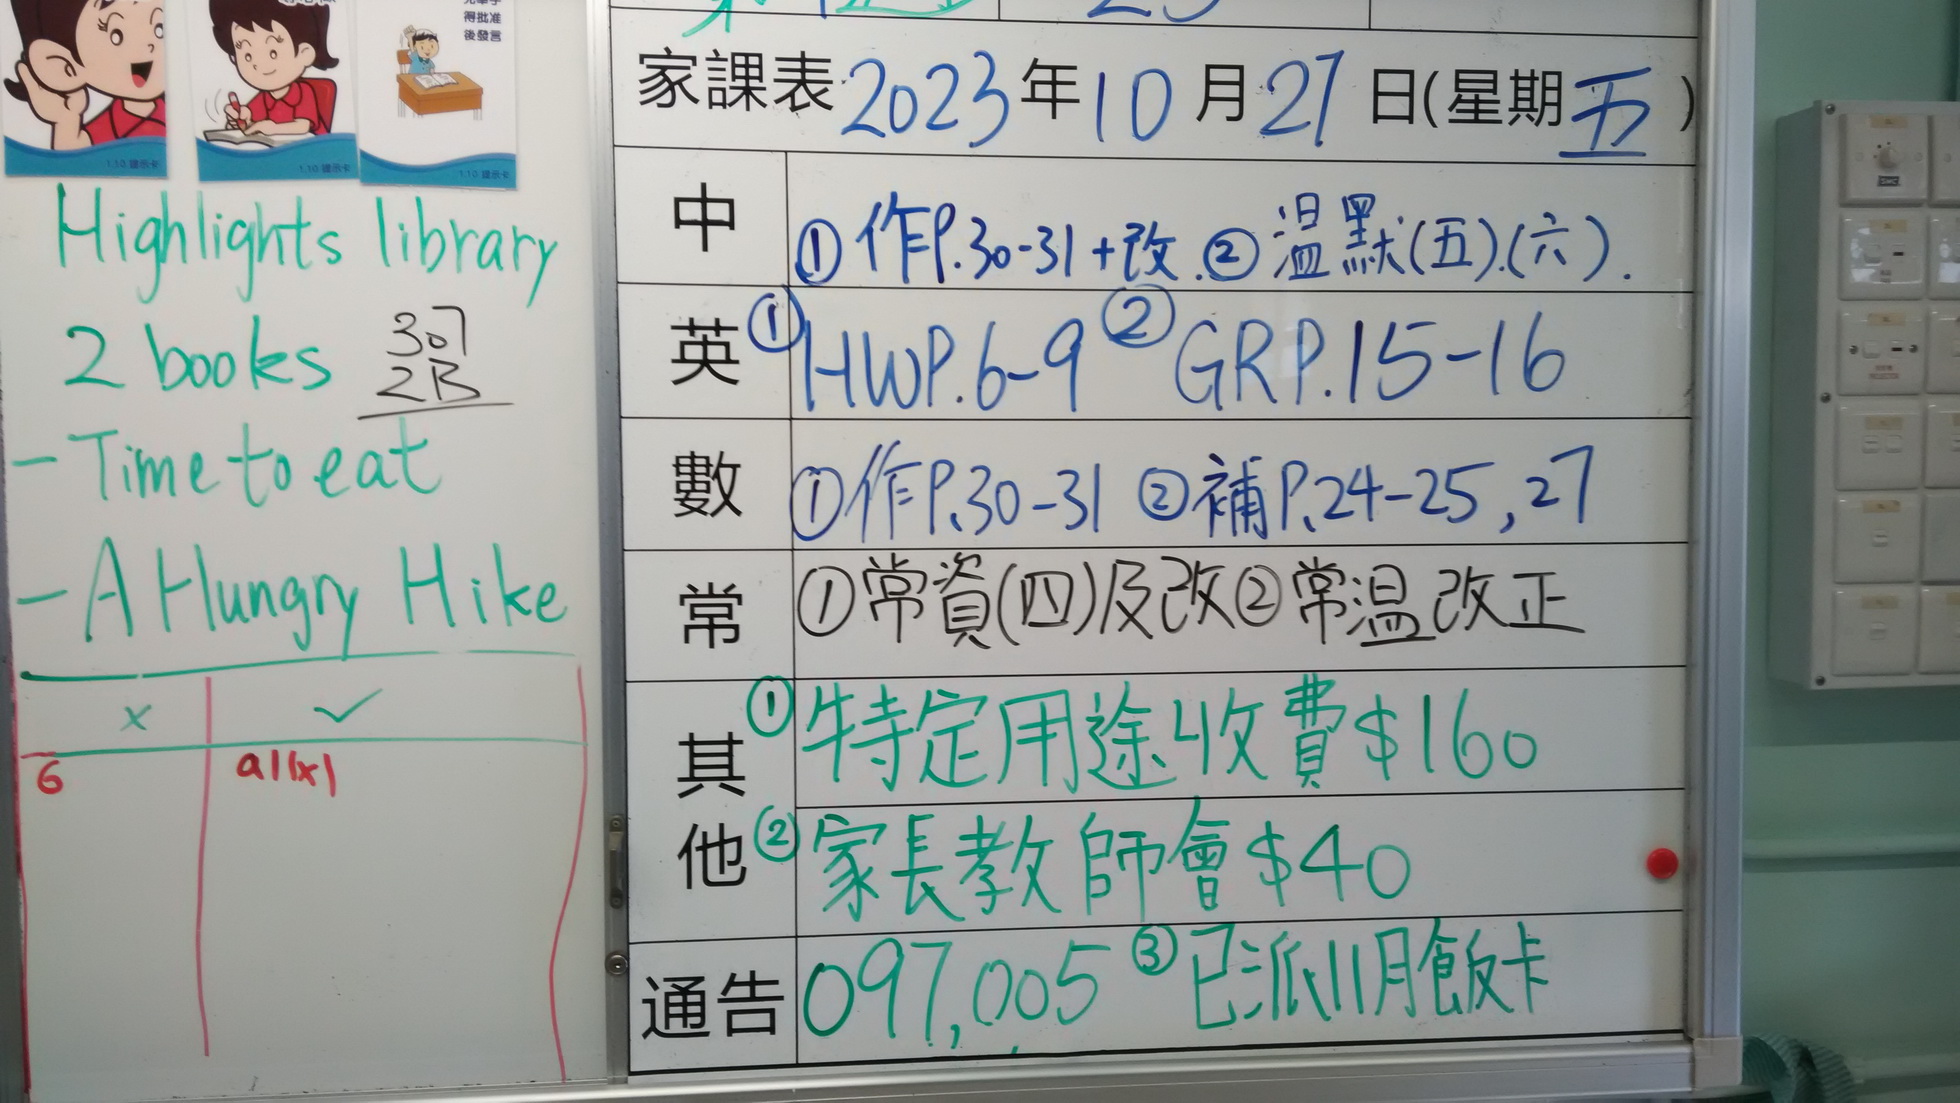 得批准
後發言
1.10 提示卡
1.10 提示卡
1.10 提示卡
Highlights library
2 books
307
2B
- Time to eat
- A Hungry Hike
x ✓
6
家課表 2023年10月27日(星期五)
中 ①作P.30-31+改.②温默(五).(六).
英 ①HWP.6-9 ②GRP.15-16
數 ①作P.30-31 ②補P.24-25,27
常 ①常資(四)及改②常温改正
其他 ①特定用途收費$160
②家長教師會$40
通告 097,005 ③已派11月飯卡